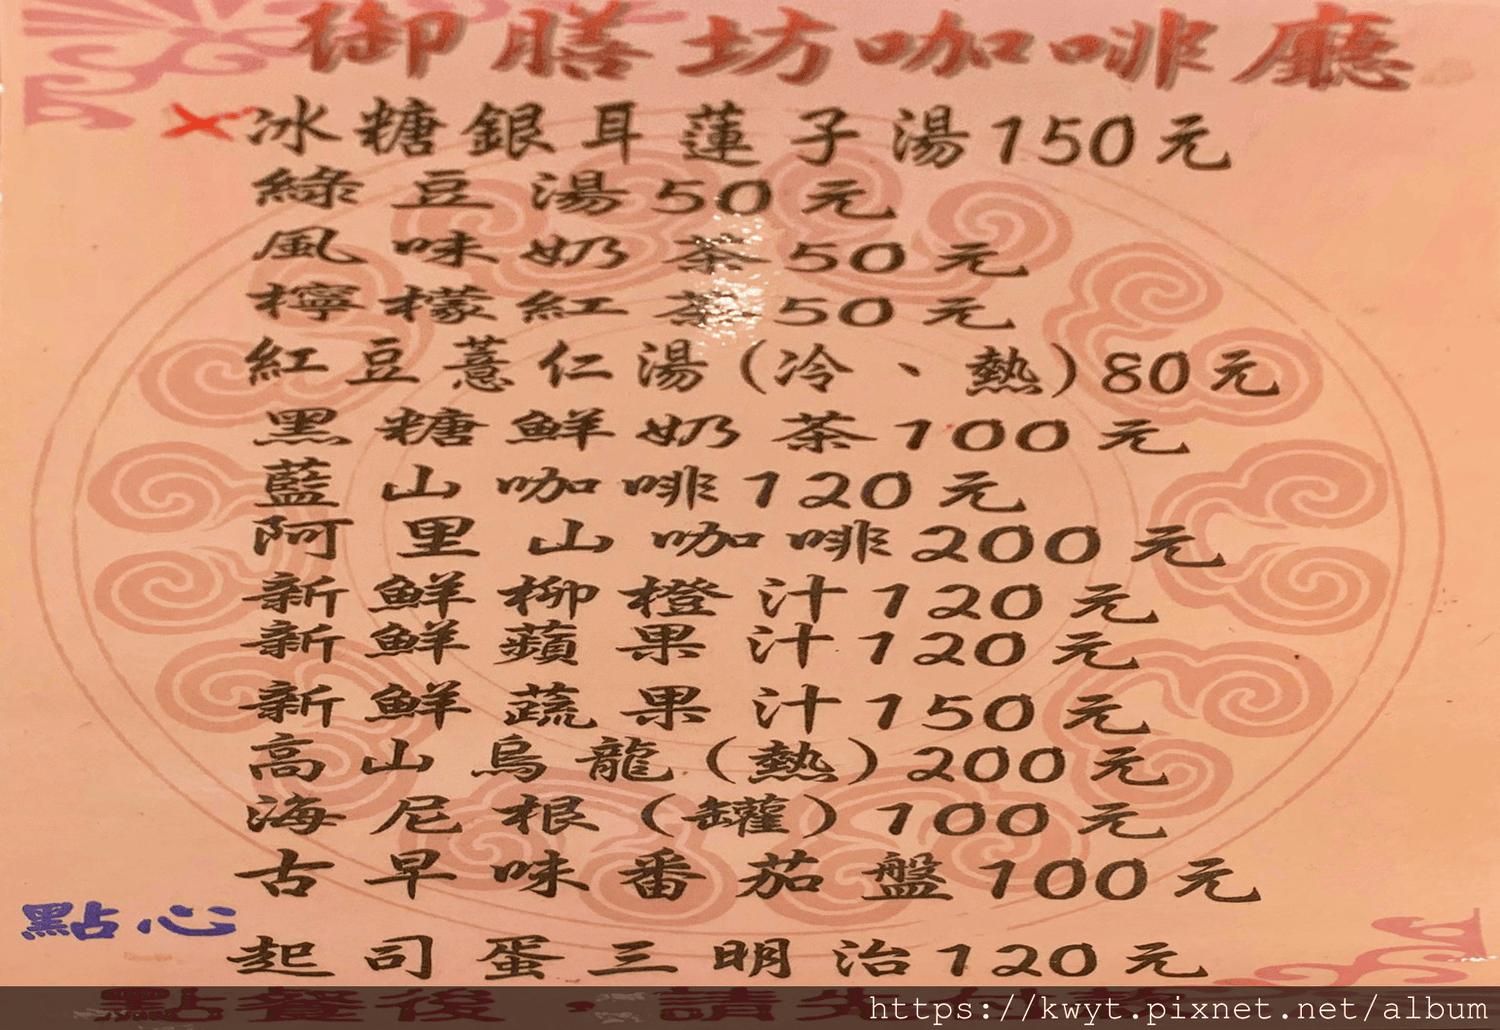 御膳坊咖啡廳
冰糖銀耳蓮子湯150元
綠豆湯50元
風味奶茶50元
檸檬紅茶50元
紅豆薏仁湯(冷、熱)80元
黑糖鮮奶茶100元
藍山咖啡120元
阿里山咖啡200元
新鮮柳橙汁120元
新鮮蘋果汁120元
新鮮蔬果汁150元
高山烏龍(熱)200元
海尼根(罐)100元
古早味番茄盤100元
點心
起司蛋三明治120元
點餐後,請先
https://kwyt.pixnet.net/album